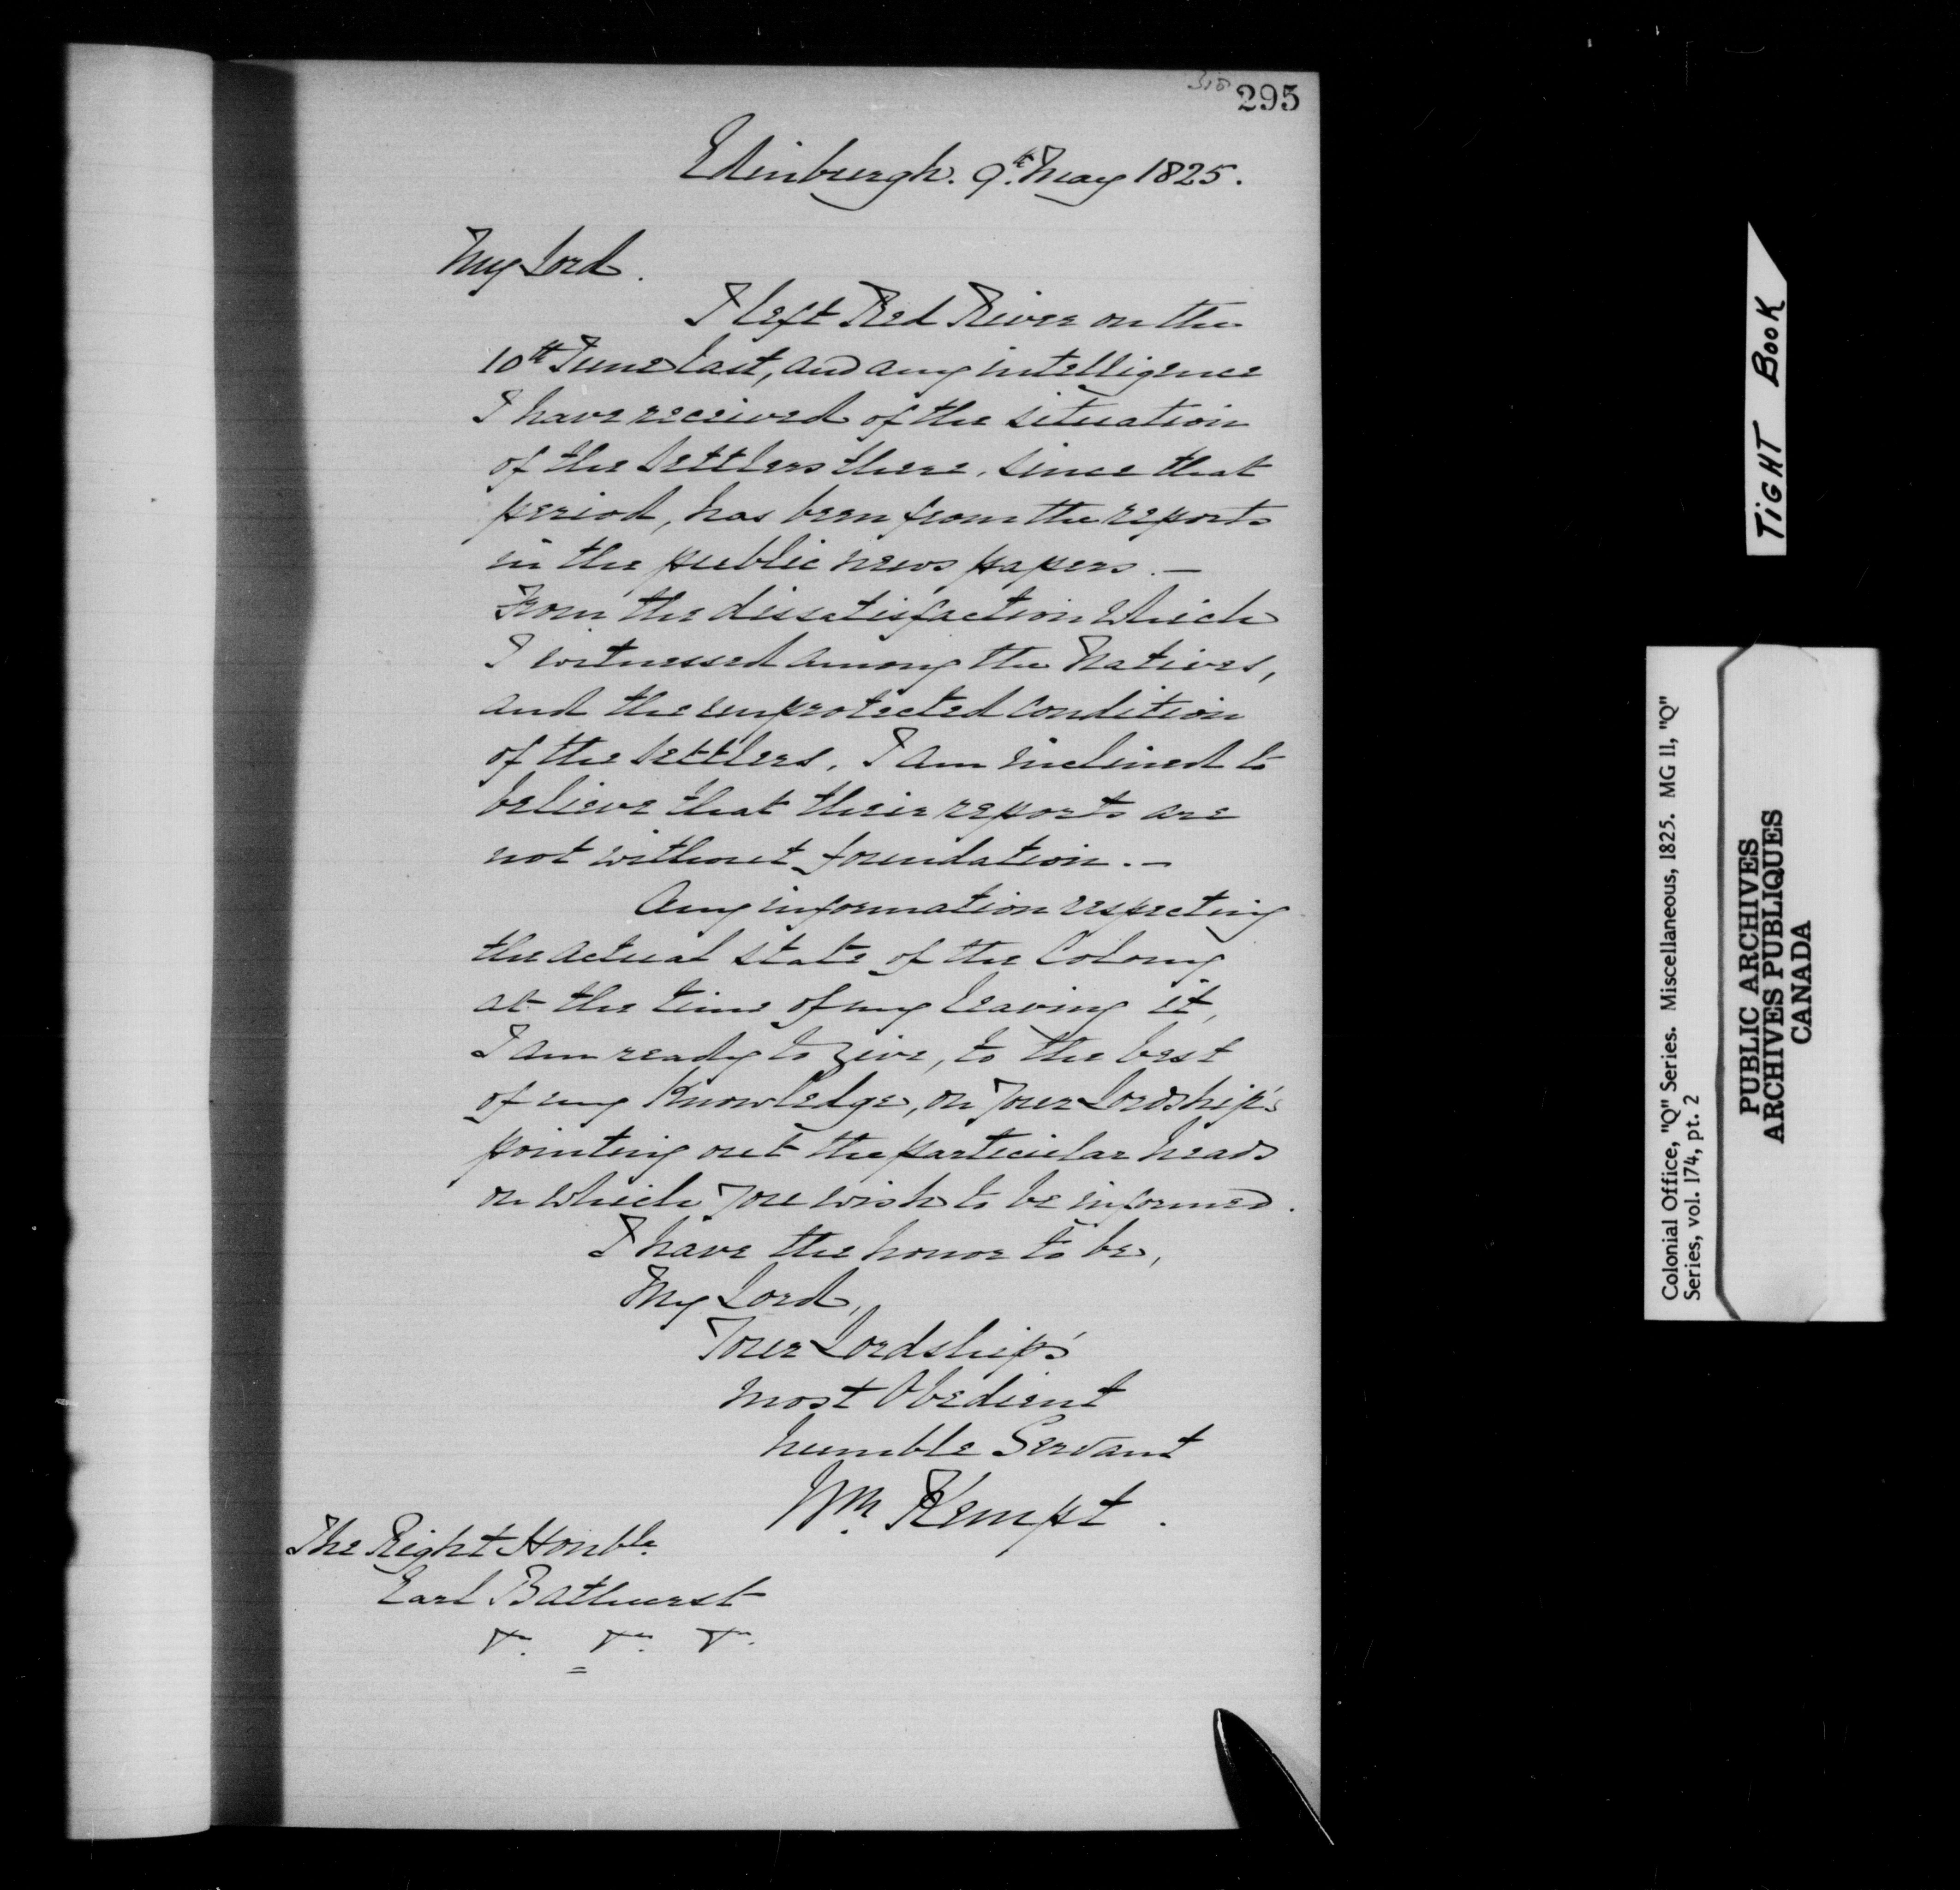 295
Edinburgh. 9th. May 1825.
My Lord.
I left Red River on the
10th June last, and any intelligence
I have received of the situation
of the Settlers there, since that
period, has been from the reports
in the public news papers. —
From the dissatisfaction which
I witnessed among the Natives,
and the unprotected condition
of the Settlers, I am inclined to
believe that their reports are
not without foundation. —
Any information respecting
the actual state of the Colony
at the time of my leaving it,
I am ready to give, to the best
of my Knowledge, on Your Lordship's
pointing out the particular heads
on which you wish to be informed.
I have the honor to be,
My Lord,
Your Lordship's
most Obedient
humble Servant
Wm. Kempt.
The Right Honble.
Earl Bathurst
TIGHT BOOK
Colonial Office, "Q" Series. Miscellaneous, 1825. MG 11, "Q"
Series, vol. 174, pt. 2
PUBLIC ARCHIVES
ARCHIVES PUBLIQUES
CANADA